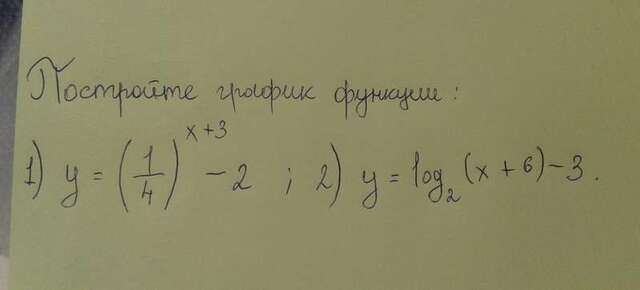 Постройте график функции:
1) y = (1/4)^(x+3) - 2 ; 2) y = log₂(x + 6) - 3.